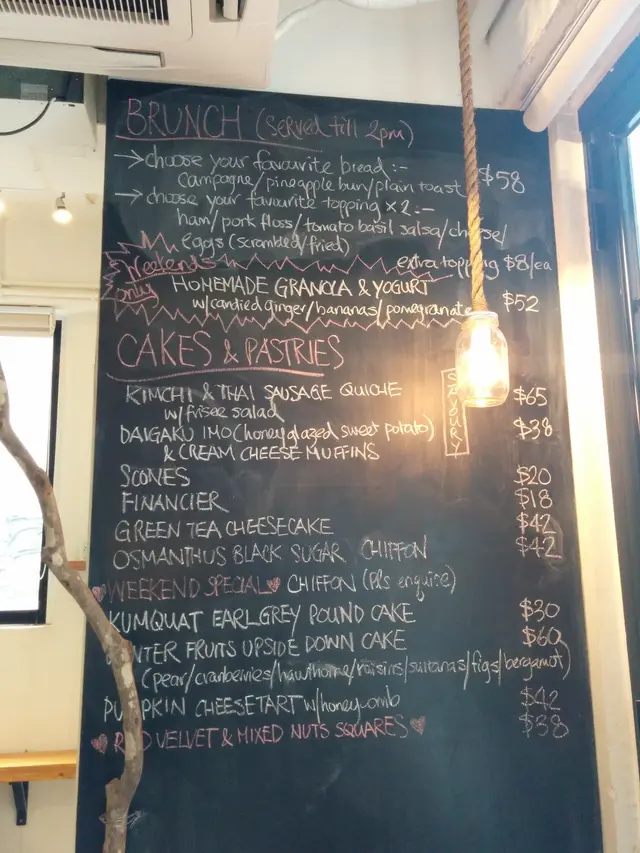 BRUNCH (served till 2pm)
→ choose your favourite bread:-
Campagne/pineapple bun/plain toast $58
→ choose your favourite topping x2:-
ham/pork floss/tomato basil salsa/cheese/
eggs (scrambled/fried)
extra topping $8/ea
Weekends only
HOMEMADE GRANOLA & YOGURT
w/candied ginger/bananas/pomegranate $52
CAKES & PASTRIES
SAVOURY
KIMCHI & THAI SAUSAGE QUICHE $65
w/frisee salad
DAIGAKU IMO (honey glazed sweet potato) $38
& CREAM CHEESE MUFFINS
SCONES $20
FINANCIER $18
GREEN TEA CHEESECAKE $42
OSMANTHUS BLACK SUGAR CHIFFON $42
WEEKEND SPECIAL CHIFFON (pls enquire)
KUMQUAT EARLGREY POUND CAKE $30
WINTER FRUITS UPSIDE DOWN CAKE $60
(pear/cranberries/hawthorne/raisins/sultanas/figs/bergamot)
PUMPKIN CHEESETART w/honeycomb $42
RED VELVET & MIXED NUTS SQUARES $38